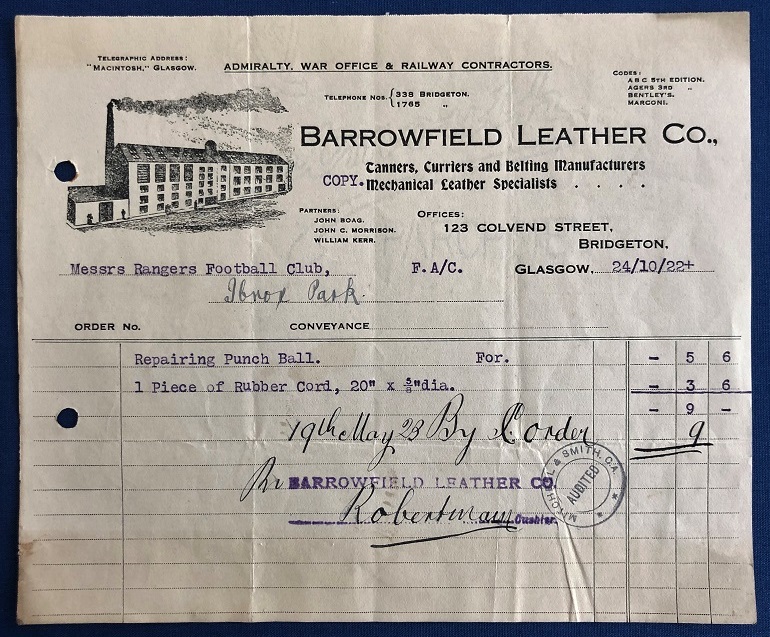 TELEGRAPHIC ADDRESS:
"MACINTOSH," GLASGOW.
ADMIRALTY, WAR OFFICE & RAILWAY CONTRACTORS.
CODES:
A B C 5TH EDITION.
AGERS 3RD "
BENTLEY'S.
MARCONI.
TELEPHONE NOS. { 338 BRIDGETON.
1765 "
BARROWFIELD LEATHER CO.,
Tanners, Curriers and Belting Manufacturers
COPY. Mechanical Leather Specialists . . . .
PARTNERS:
JOHN BOAG.
JOHN C. MORRISON.
WILLIAM KERR.
OFFICES:
123 COLVEND STREET,
BRIDGETON,
Messrs Rangers Football Club, F.A/C. GLASGOW, 24/10/22+
Ibrox Park.
ORDER NO. CONVEYANCE
Repairing Punch Ball. For. - 5 6
1 Piece of Rubber Cord, 20" x ⅝"dia. - 3 6
- 9 -
19th May 23 By order 9
BARROWFIELD LEATHER CO.
Cashier.
MITCHELL & SMITH, C.A.
AUDITED